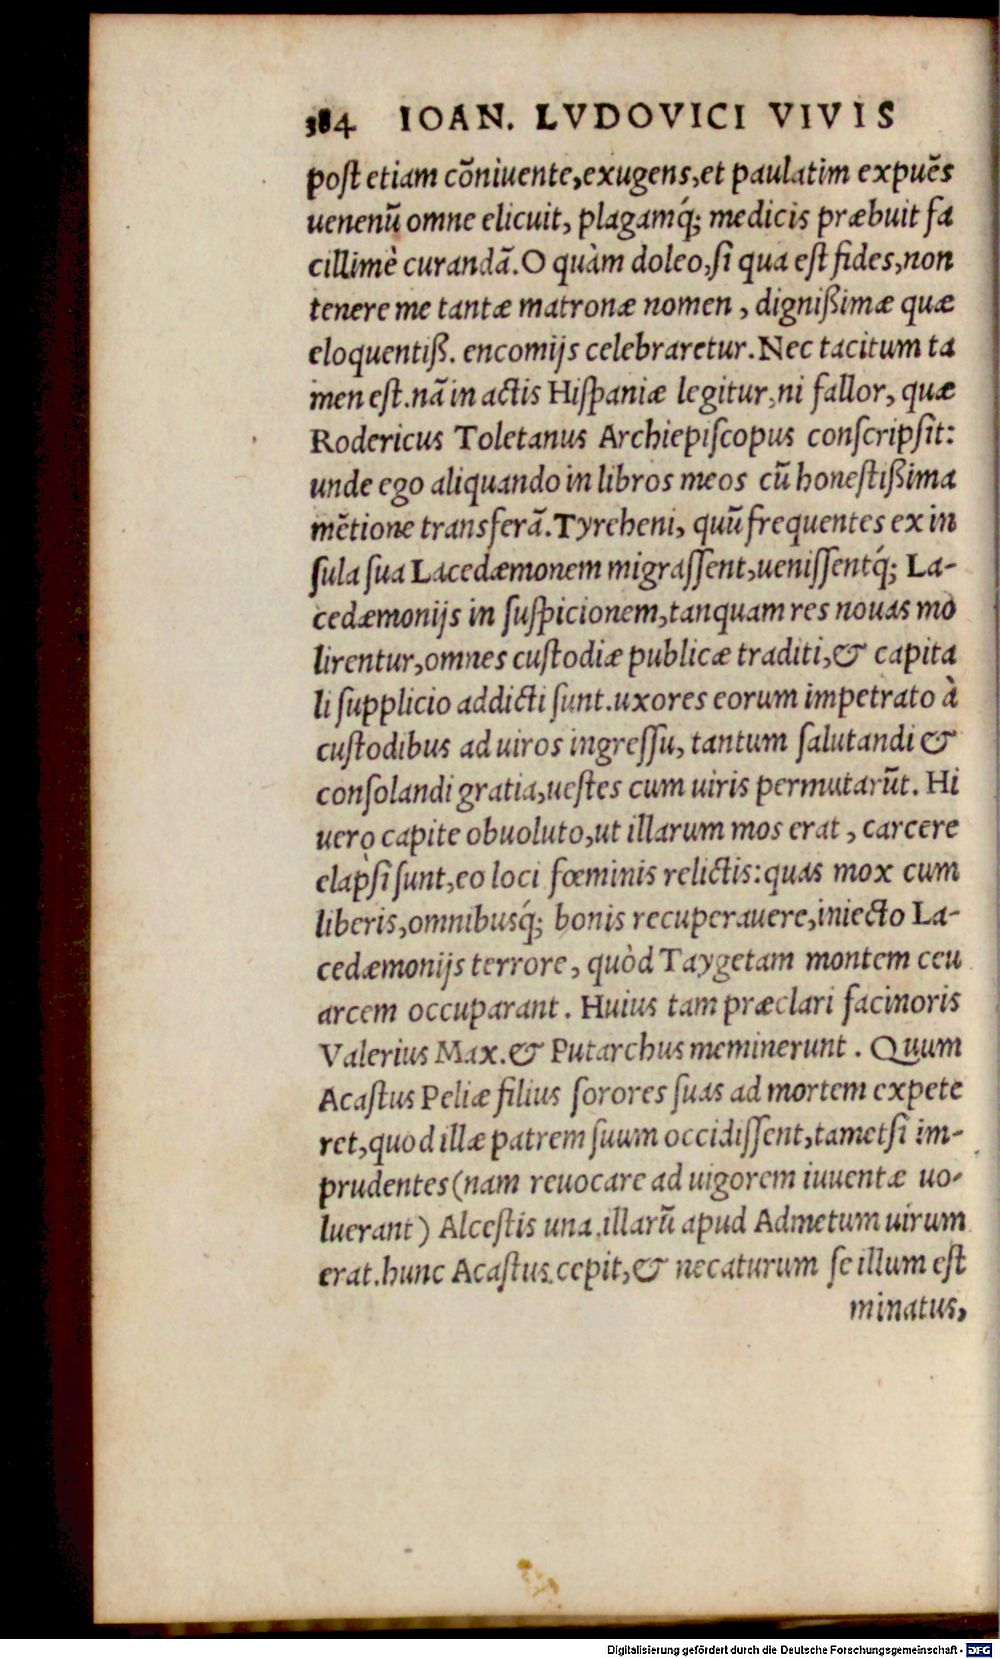 384 IOAN. LVDOVICI VIVIS
post etiam cōniuente, exugens, et paulatim expuēs
uenenū omne elicuit, plagamq́; medicis præbuit fa
cillimè curandā. O quàm doleo, si qua est fides, non
tenere me tantæ matronæ nomen, dignißimæ quæ
eloquentiß. encomijs celebraretur. Nec tacitum ta
men est. nā in actis Hispaniæ legitur, ni fallor, quæ
Rodericus Toletanus Archiepiscopus conscripsit:
unde ego aliquando in libros meos cū honestißima
mētione transferā. Tyrrheni, quū frequentes ex in
sula sua Lacedæmonem migrassent, uenissentq́; La-
cedæmonijs in suspicionem, tanquam res nouas mo
lirentur, omnes custodiæ publicæ traditi, & capita
li supplicio addicti sunt. uxores eorum impetrato à
custodibus ad uiros ingressu, tantum salutandi &
consolandi gratia, uestes cum uiris permutarūt. Hi
uero capite obuoluto, ut illarum mos erat, carcere
elapsi sunt, eo loci fœminis relictis: quas mox cum
liberis, omnibusq́; bonis recuperauere, iniecto La-
cedæmonijs terrore, quòd Taygetam montem ceu
arcem occuparant. Huius tam præclari facinoris
Valerius Max. & Putarchus meminerunt. Quum
Acastus Peliæ filius sorores suas ad mortem expete
ret, quod illæ patrem suum occidissent, tametsi im-
prudentes (nam reuocare ad uigorem iuuentæ uo-
luerant) Alcestis una illarū apud Admetum uirum
erat. hunc Acastus cepit, & necaturum se illum est
minatus,
Digitalisierung gefördert durch die Deutsche Forschungsgemeinschaft - DFG